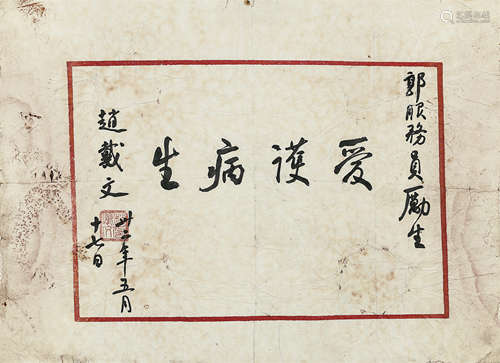 郭服務員勵生
愛護病生
趙戴文
卅二年五月
十七日